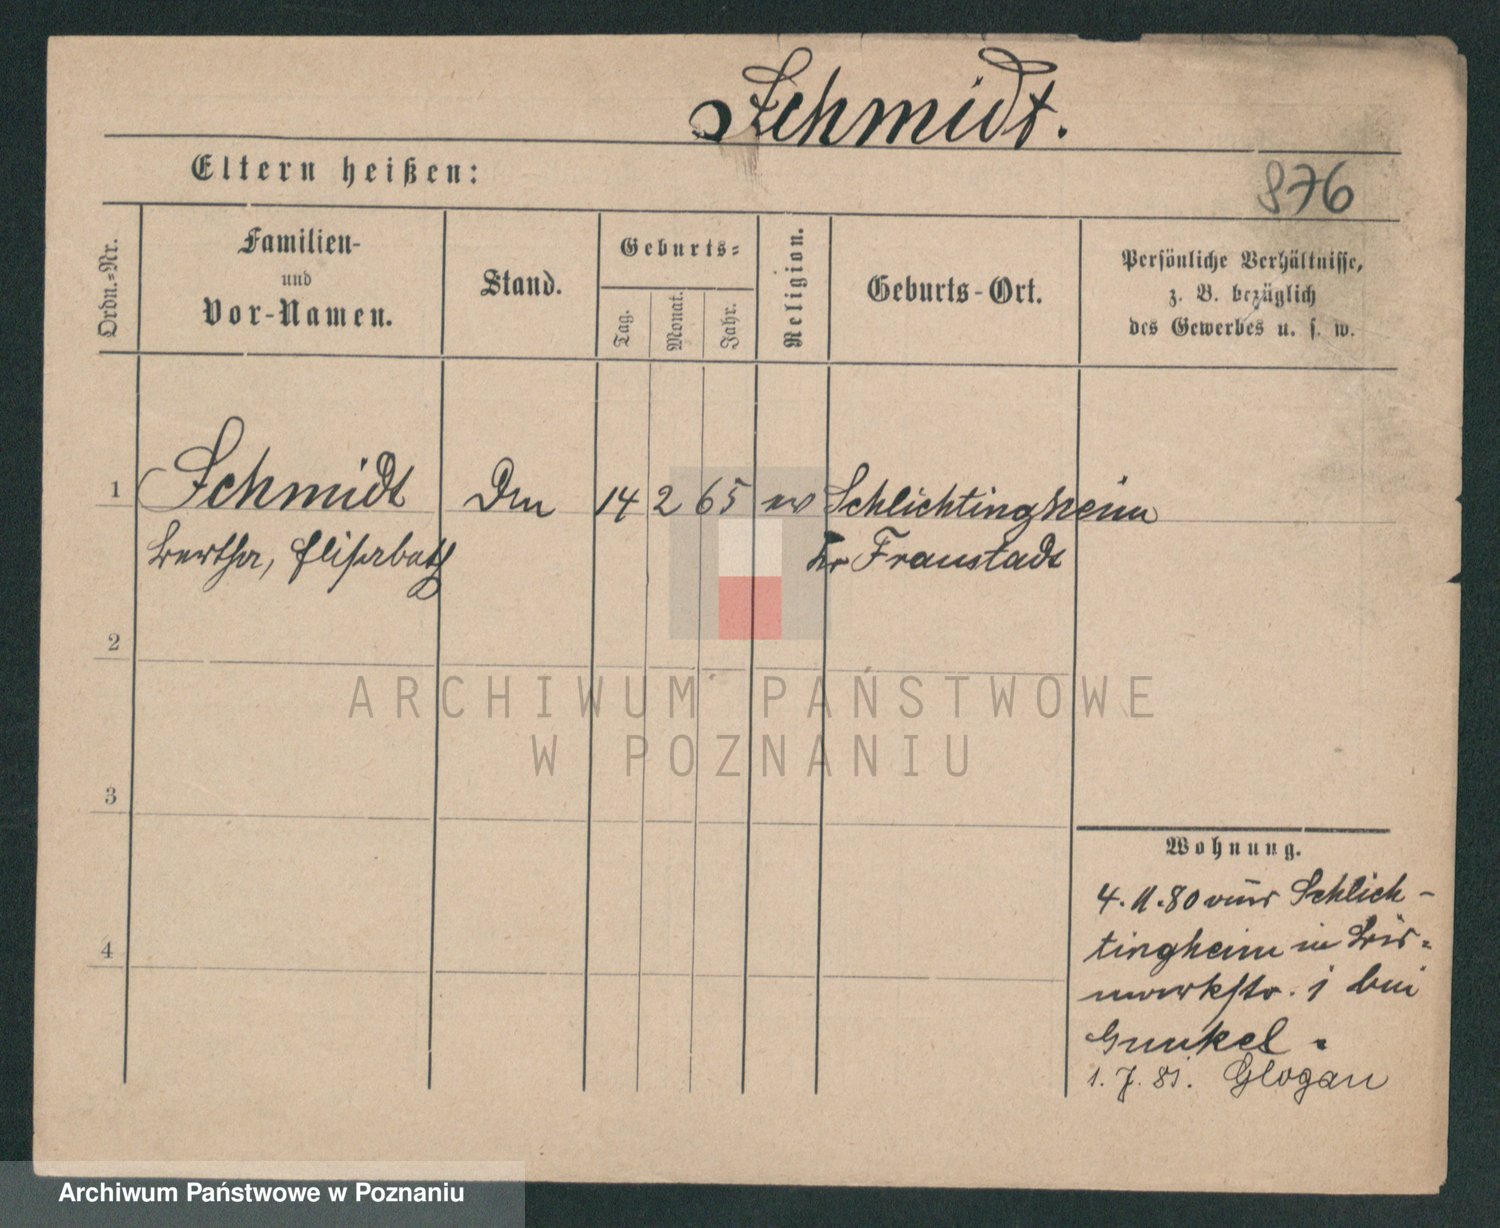 Schmidt.
Eltern heißen:
876
Ordn.-Nr.
Familien-
und
Vor-Namen.
Stand.
Geburts-
Tag.
Monat.
Jahr.
Religion.
Geburts-Ort.
Persönliche Verhältnisse,
z. B. bezüglich
des Gewerbes u. s. w.
1 Schmidt 14 2 65 ev Schlichtingsheim
Bertha, Elisabeth Kr Fraustadt
2
3
4
Wohnung.
4. 11. 80 aus Schlich-
tingheim in
1 bei
Gunkel.
1. 7. 81. Glogau
ARCHIWUM PAŃSTWOWE
W POZNANIU
Archiwum Państwowe w Poznaniu